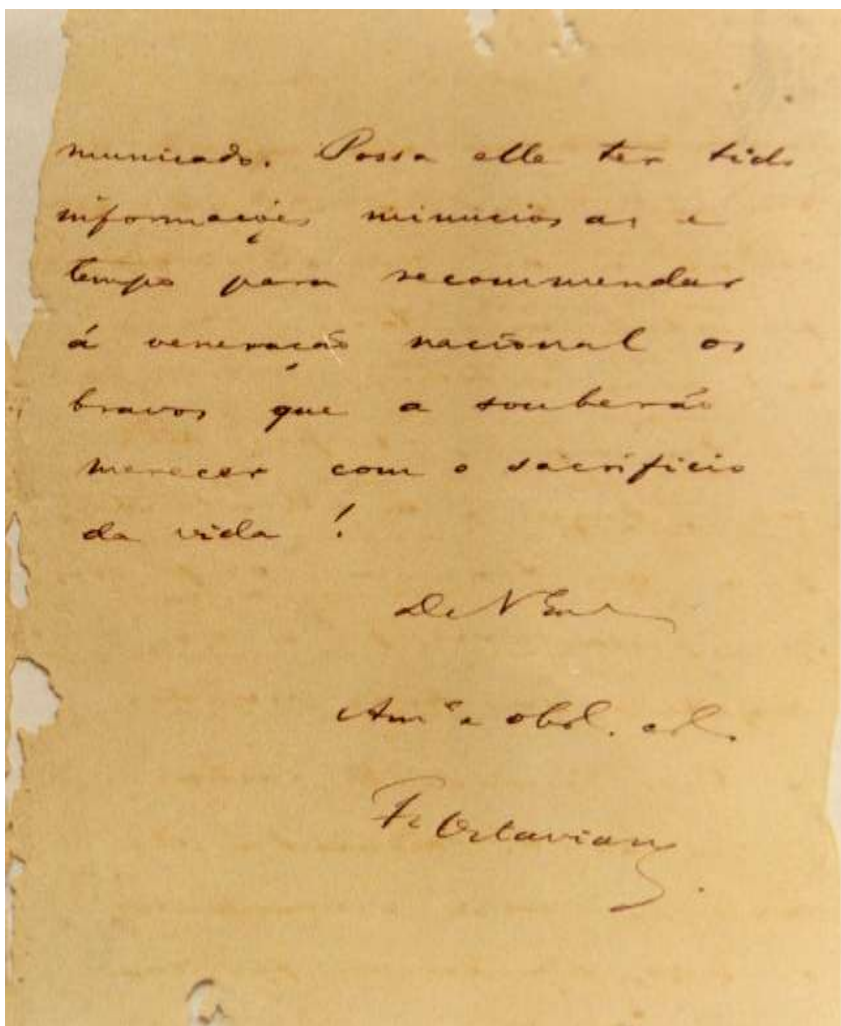 municado. Possa elle ter tido
informações minuciosas e
tempo para recommendar
á veneração nacional os
bravos que a souberão
merecer com o sacrificio
da vida !
De V Ex
Am.º e obr.
F. Octaviano